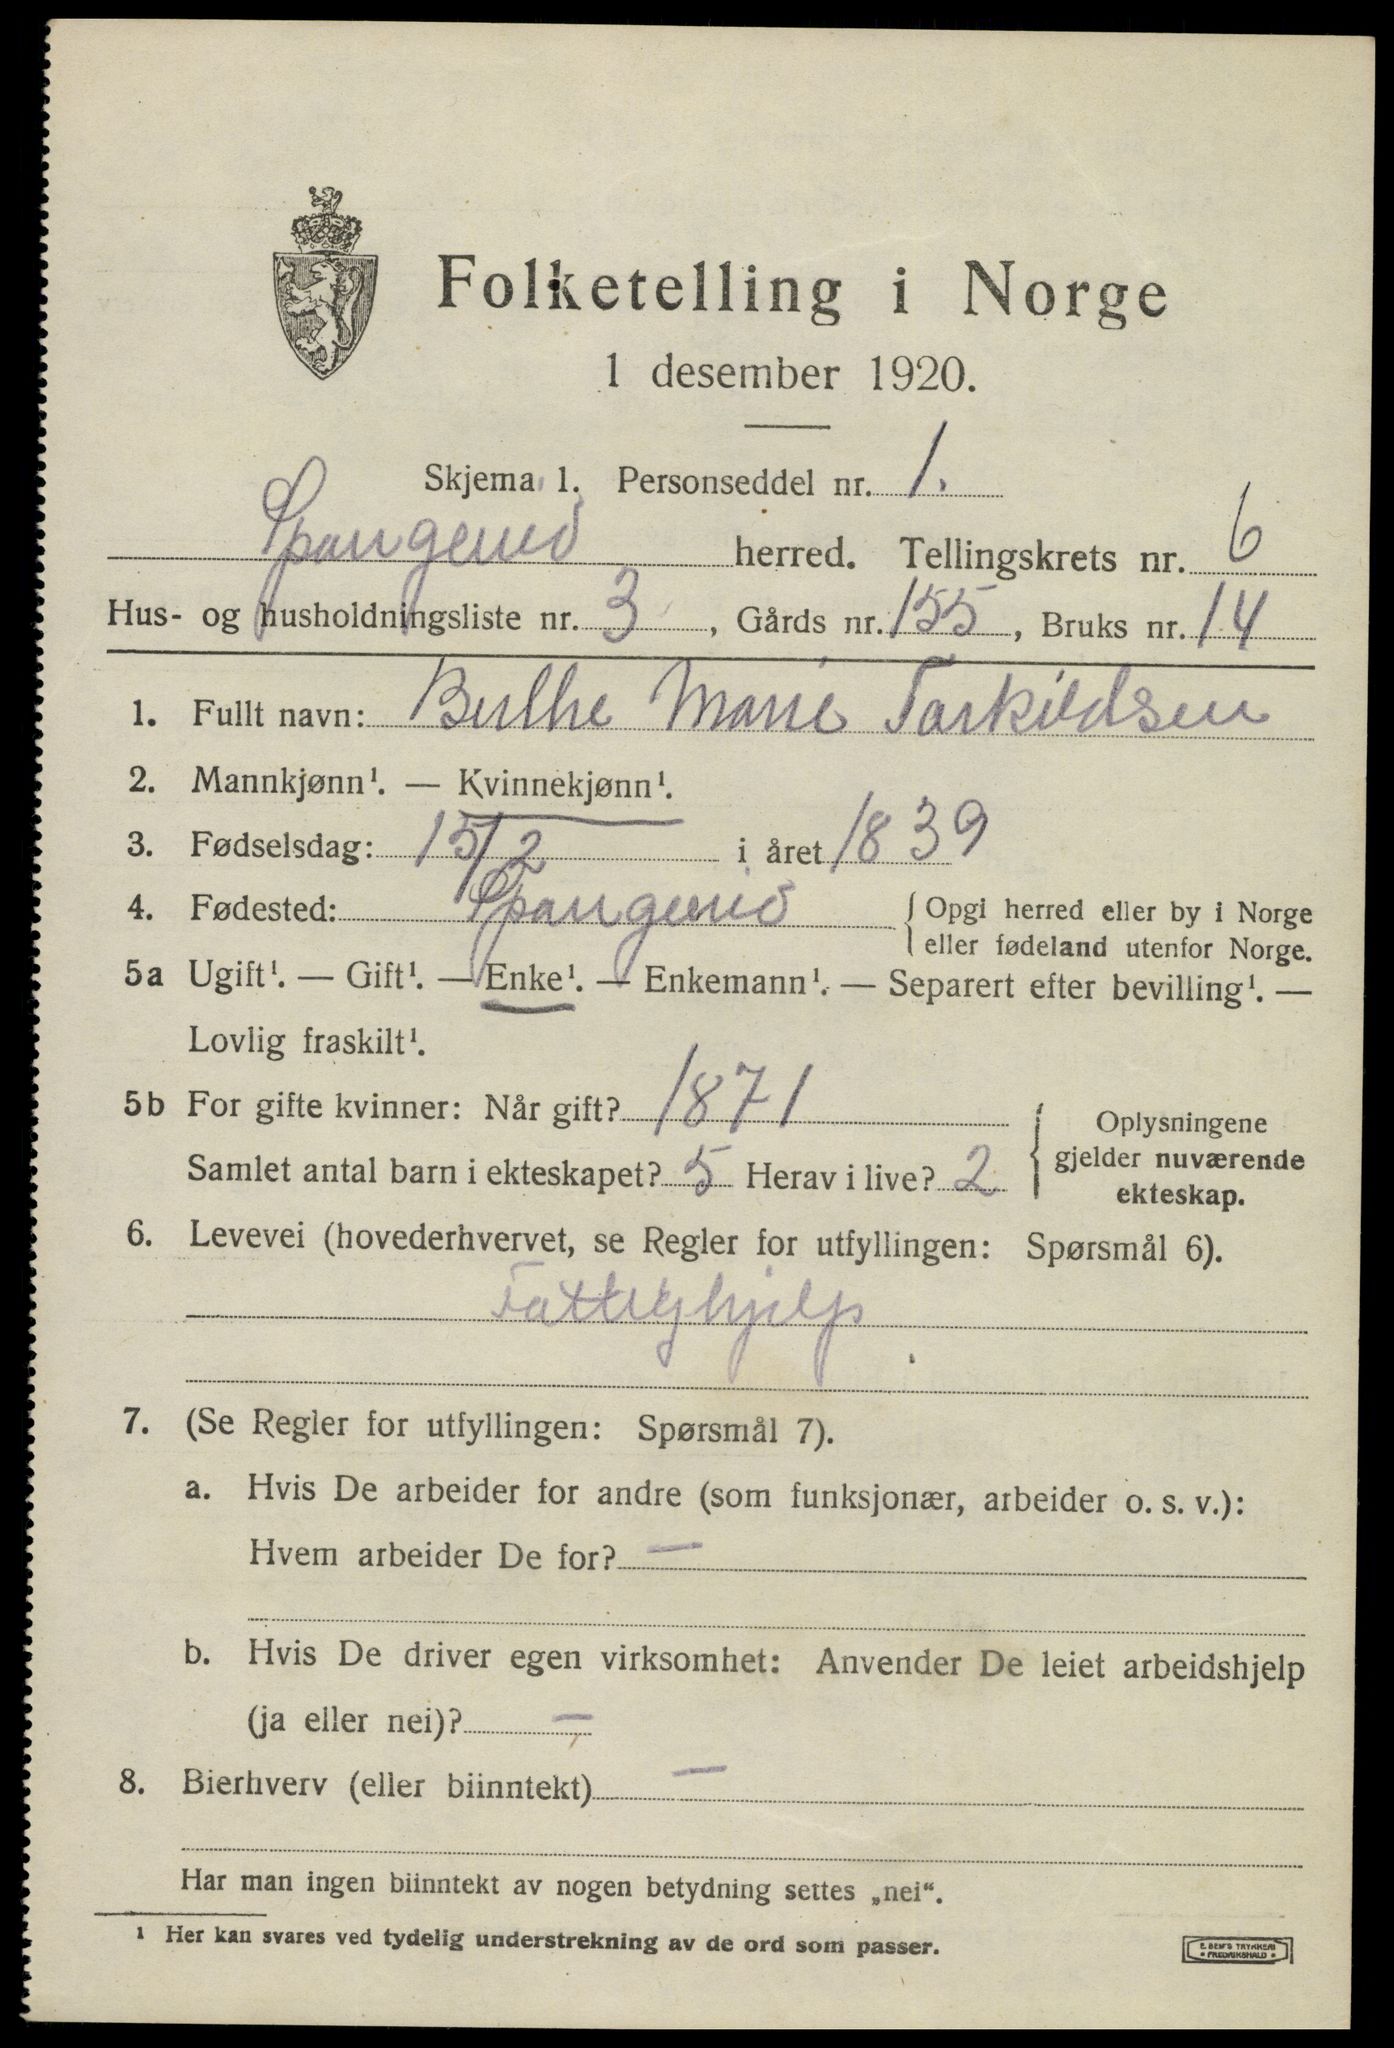 Folketelling i Norge
1 desember 1920.
Skjema 1. Personseddel nr. 1.
Spangereid herred. Tellingskrets nr. 6
Hus- og husholdningsliste nr. 3, Gårds nr. 155, Bruks nr. 14
1. Fullt navn: Berthe Marie Tarkildsen
2. Mannkjønn¹. — Kvinnekjønn¹.
3. Fødselsdag: 15/2 i året 1839
4. Fødested: Spangereid { Opgi herred eller by i Norge
eller fødeland utenfor Norge.
5a Ugift¹. — Gift¹. — Enke¹. — Enkemann¹. — Separert efter bevilling¹. —
Lovlig fraskilt¹.
5b For gifte kvinner: Når gift? 1871
Samlet antal barn i ekteskapet? 5 Herav i live? 2
{ Oplysningene
gjelder nuværende
ekteskap.
6. Levevei (hovederhvervet, se Regler for utfyllingen: Spørsmål 6).
Fattighjelp
7. (Se Regler for utfyllingen: Spørsmål 7).
a. Hvis De arbeider for andre (som funksjonær, arbeider o. s. v.):
Hvem arbeider De for? —
b. Hvis De driver egen virksomhet: Anvender De leiet arbeidshjelp
(ja eller nei)? —
8. Bierhverv (eller biinntekt) —
Har man ingen biinntekt av nogen betydning settes „nei“.
¹ Her kan svares ved tydelig understrekning av de ord som passer.
E. SEM'S TRYKKERI
FREDRIKSHALD